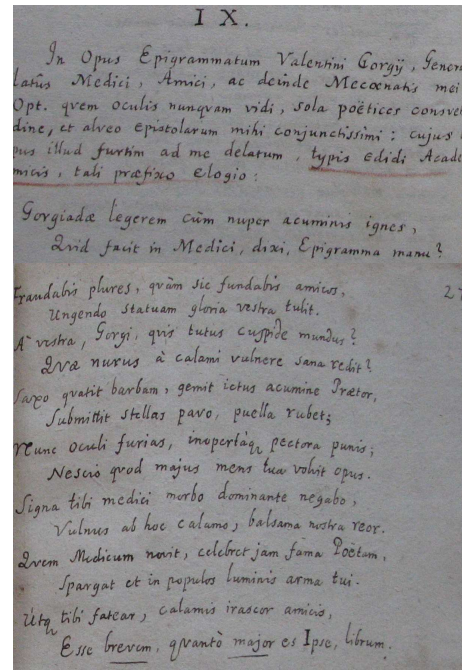 IX.
In Opus Epigrammatum Valentini Gorgÿ, Gener
latûs Medici, Amici, ac deinde Mecœnatis mei
Opt. qvem oculis nunqvam vidi, sola poëtices consve
dine, et alveo epistolarum mihi conjunctissimi: cujus
pus illud furtim ad me delatum, typis edidi Acade
micis, tali præfixo elogio:
Gorgiadæ legerem cûm nuper acuminis ignes,
Qvid facit in Medici, dixi, Epigramma manu?
Fraudabis plures, qvàm sic fundabis amicos, 27
Ungendo statuam gloria vestra tulit.
A vestra, Gorgi, qvis tutus cuspide mundus?
Qvæ nurus à calami vulnere sana redit?
Saxo qvatit barbam, gemit ictus acumine Prætor,
Submittit stellas pavo, puella rubet;
Nunc oculi furias, inopertáq pectora punis;
Nescio qvod majus mens tua volvit opus.
Signa tibi medici morbo dominante negabo,
Vulnus ab hoc calamo, balsama nostra reor.
Qvem Medicum novit, celebret jam fama Poëtam,
Spargat et in populos luminis arma tui.
Utq tibi fatear, calamis irascor amicis,
Esse brevem, qvantò major es Ipse, librum.